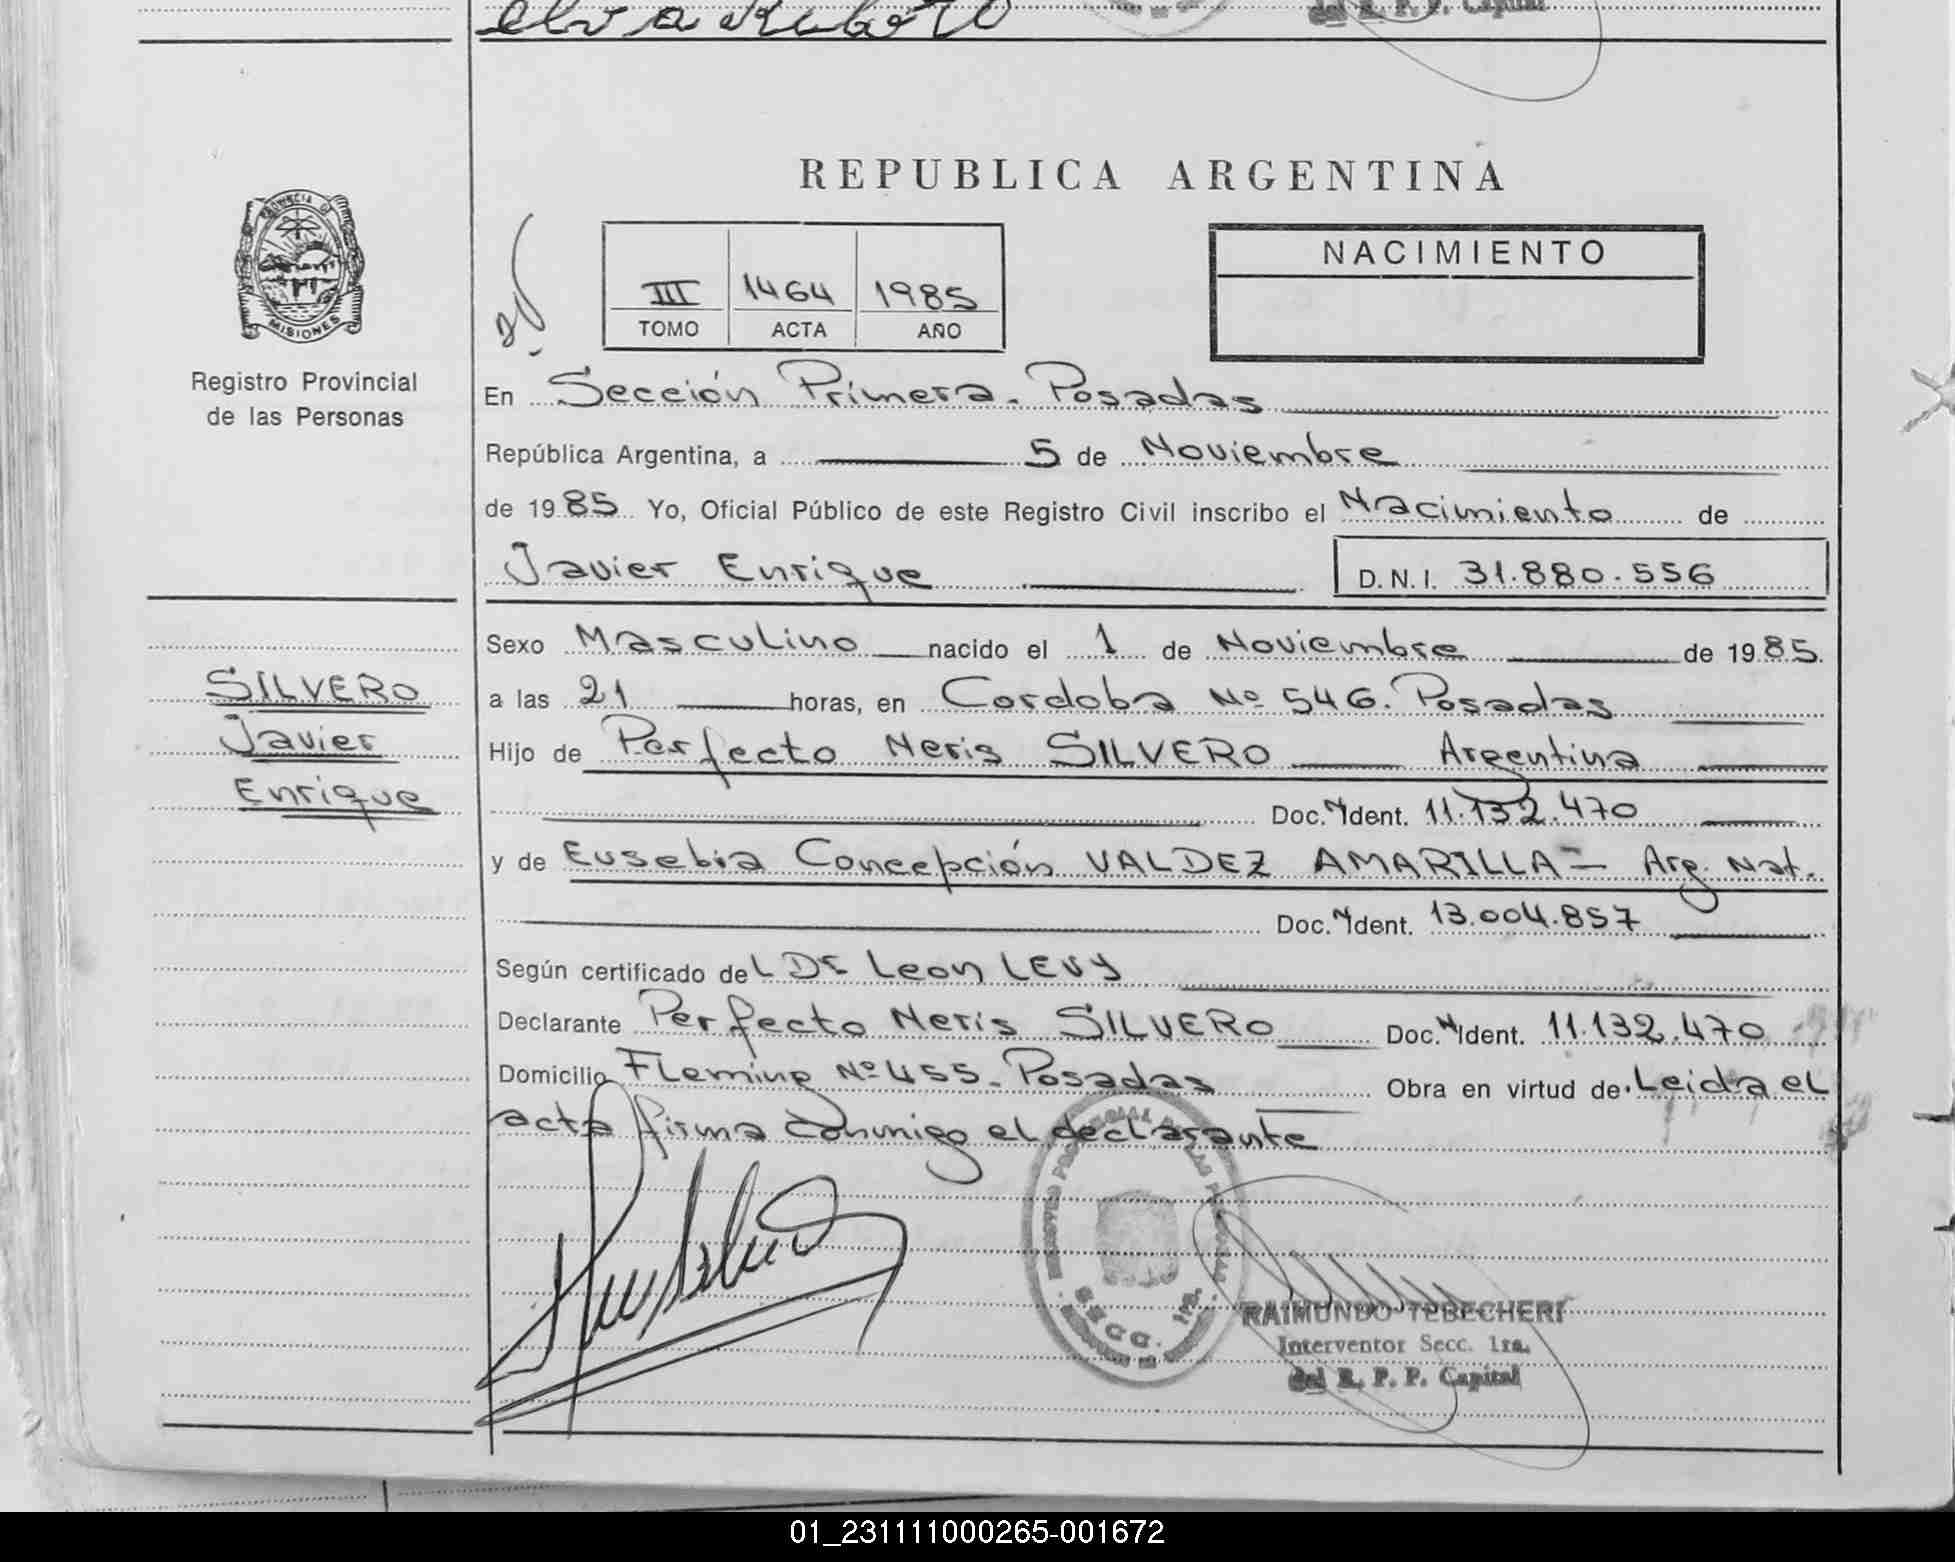 del R. P. P. Capital
REPUBLICA ARGENTINA
PROVINCIA DE
MISIONES
Registro Provincial
de las Personas
III 1464 1985
TOMO ACTA AÑO
NACIMIENTO
En Sección Primera. Posadas
República Argentina, a 5 de Noviembre
de 1985 Yo, Oficial Público de este Registro Civil inscribo el Nacimiento de
Javier Enrique D.N.I. 31.880.556
Sexo Masculino nacido el 1 de Noviembre de 1985.
SILVERO
Javier
Enrique
a las 21 horas, en Cordoba Nº 546. Posadas
Hijo de Perfecto Neris SILVERO Argentina
Doc. Ident. 11.132.470
y de Eusebia Concepción VALDEZ AMARILLA - Arg. Nat.
Doc. Ident. 13.004.857
Según certificado del Dr Leon LEVY
Declarante Perfecto Neris SILVERO Doc. Ident. 11.132.470
Domicilio Fleming Nº 455. Posadas Obra en virtud de. Leida el
acta firma conmigo el declarante
SECC. 1ra.
RAIMUNDO TEBECHERI
Interventor Secc. 1ra.
del R. P. P. Capital
01_231111000265-001672